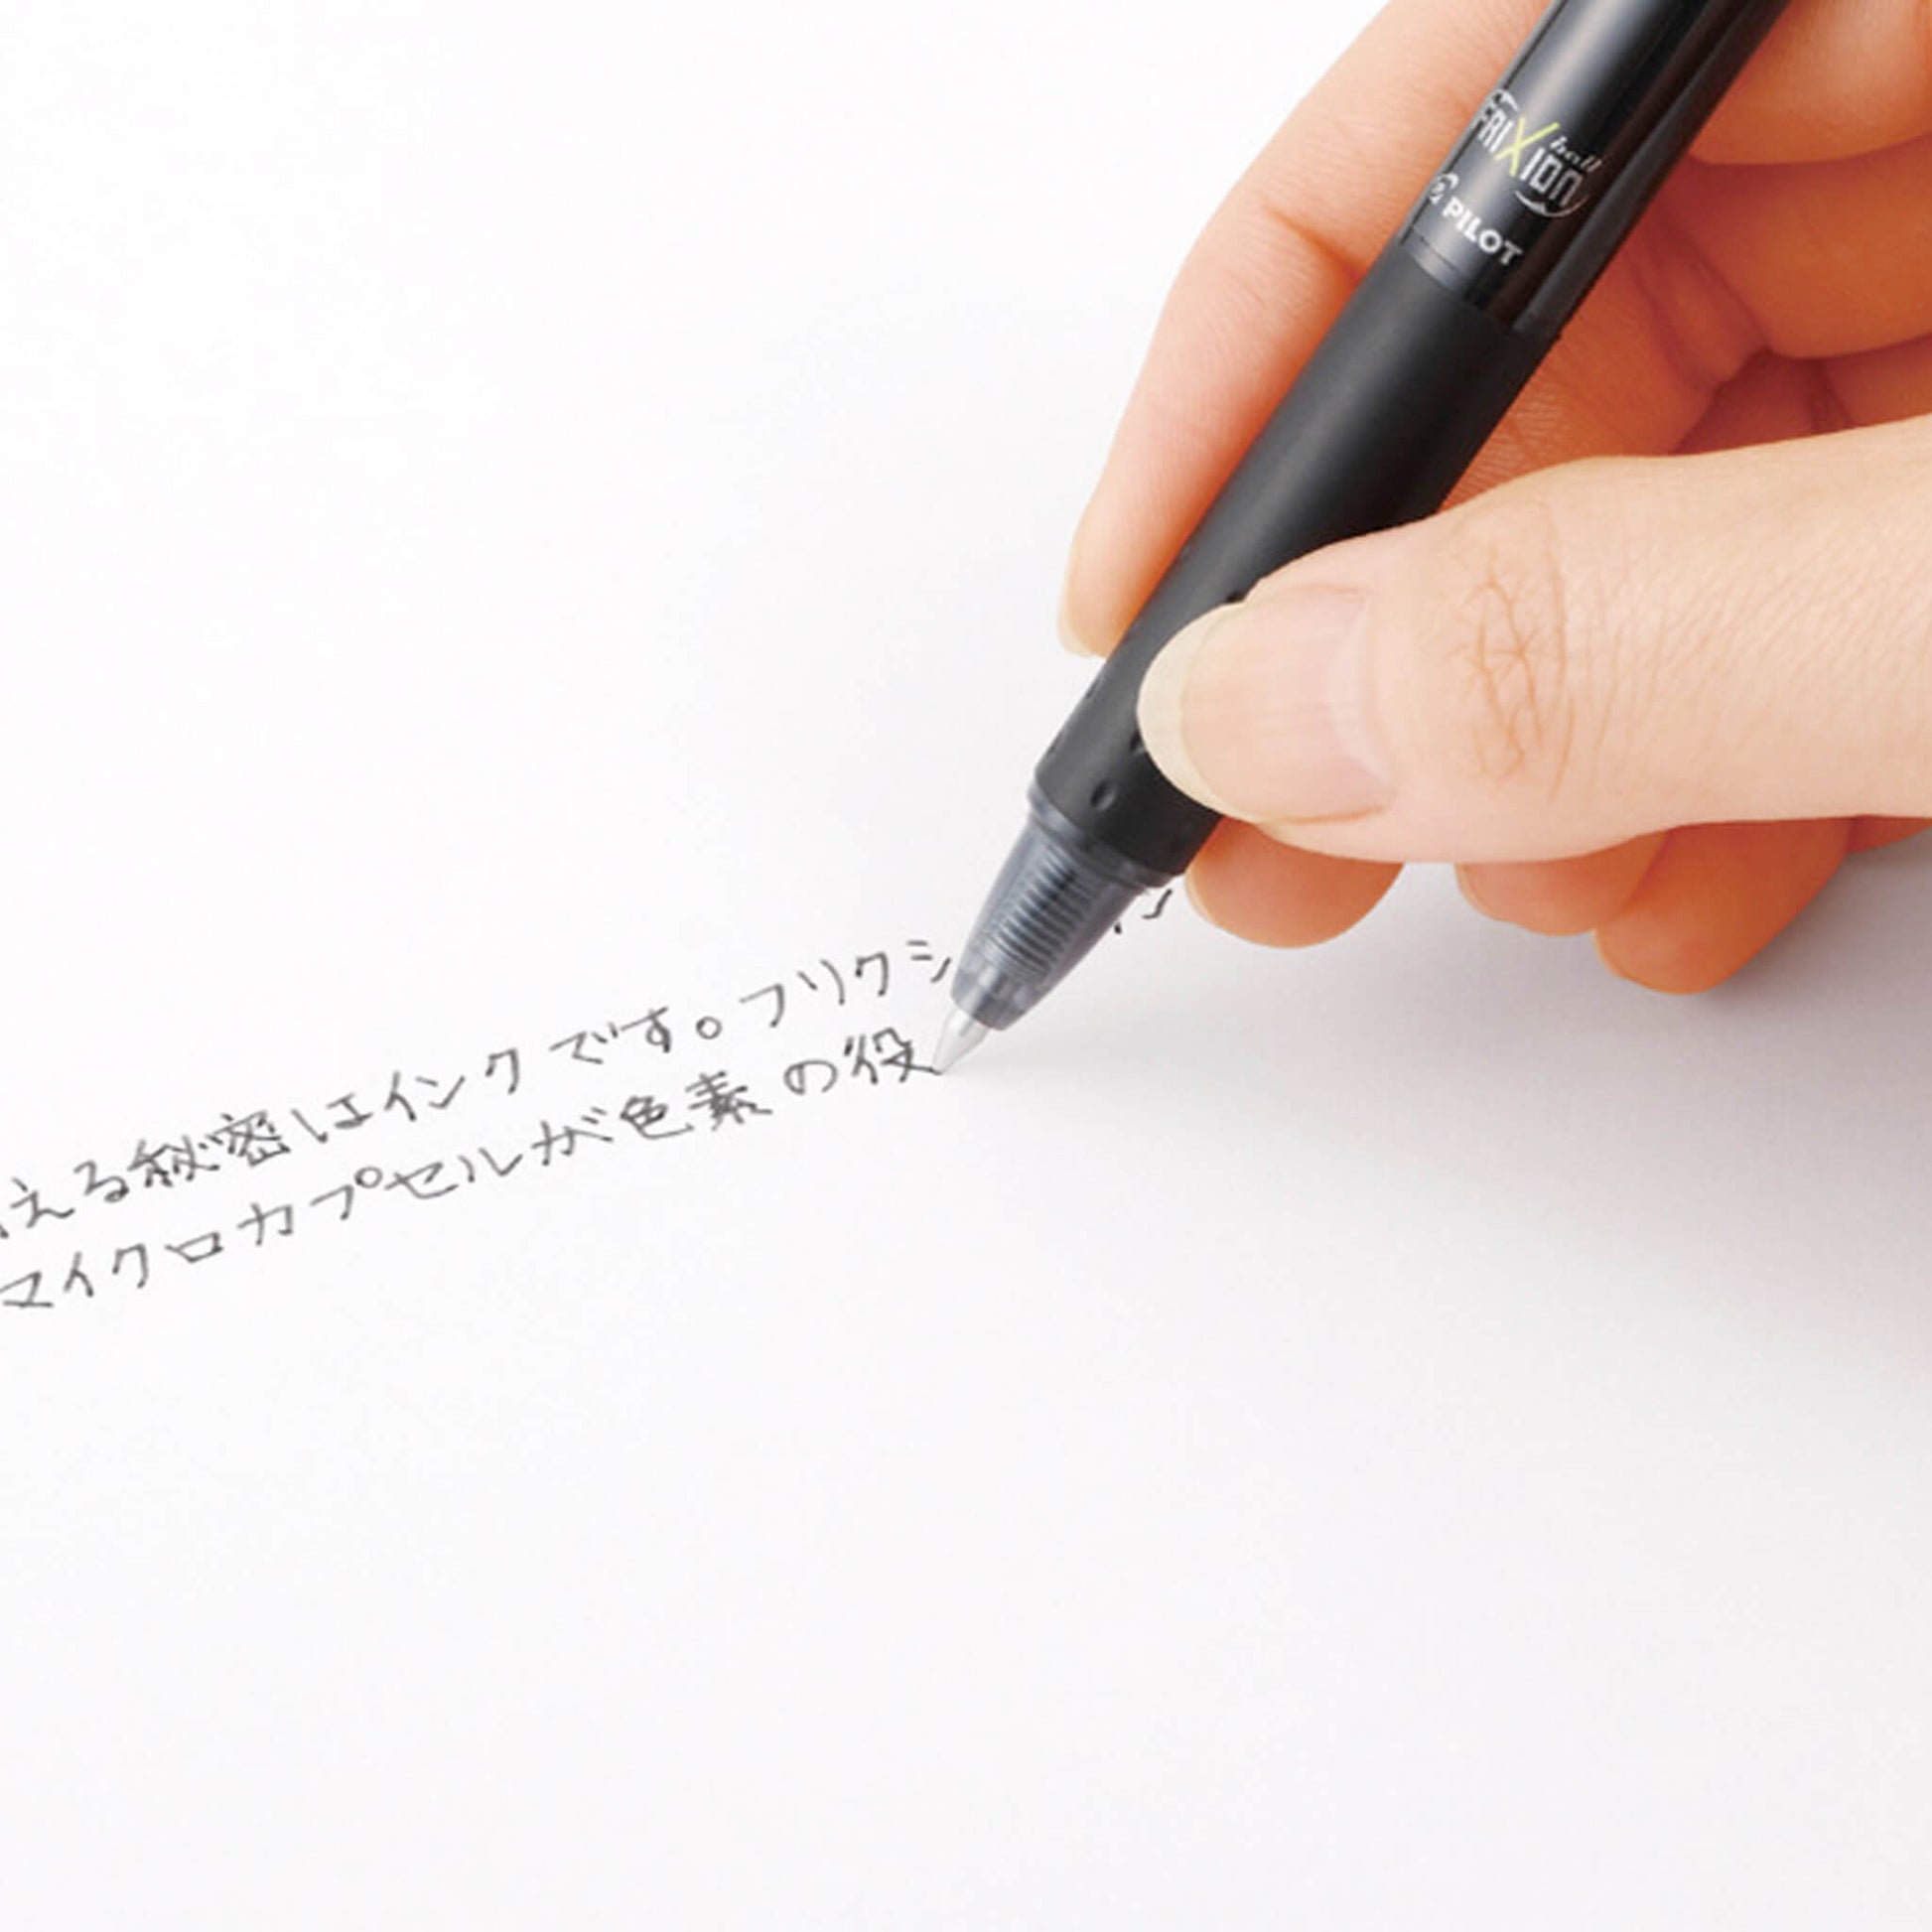 FRIXION ball
PILOT
える秘密はインクです。フリクシ
マイクロカプセルが色素の役